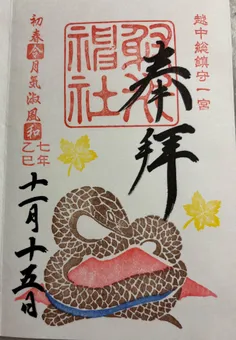 越中総鎮守一宮
奉拝
射水
神社
初春令月気淑風和
七年
乙巳
十一月十五日